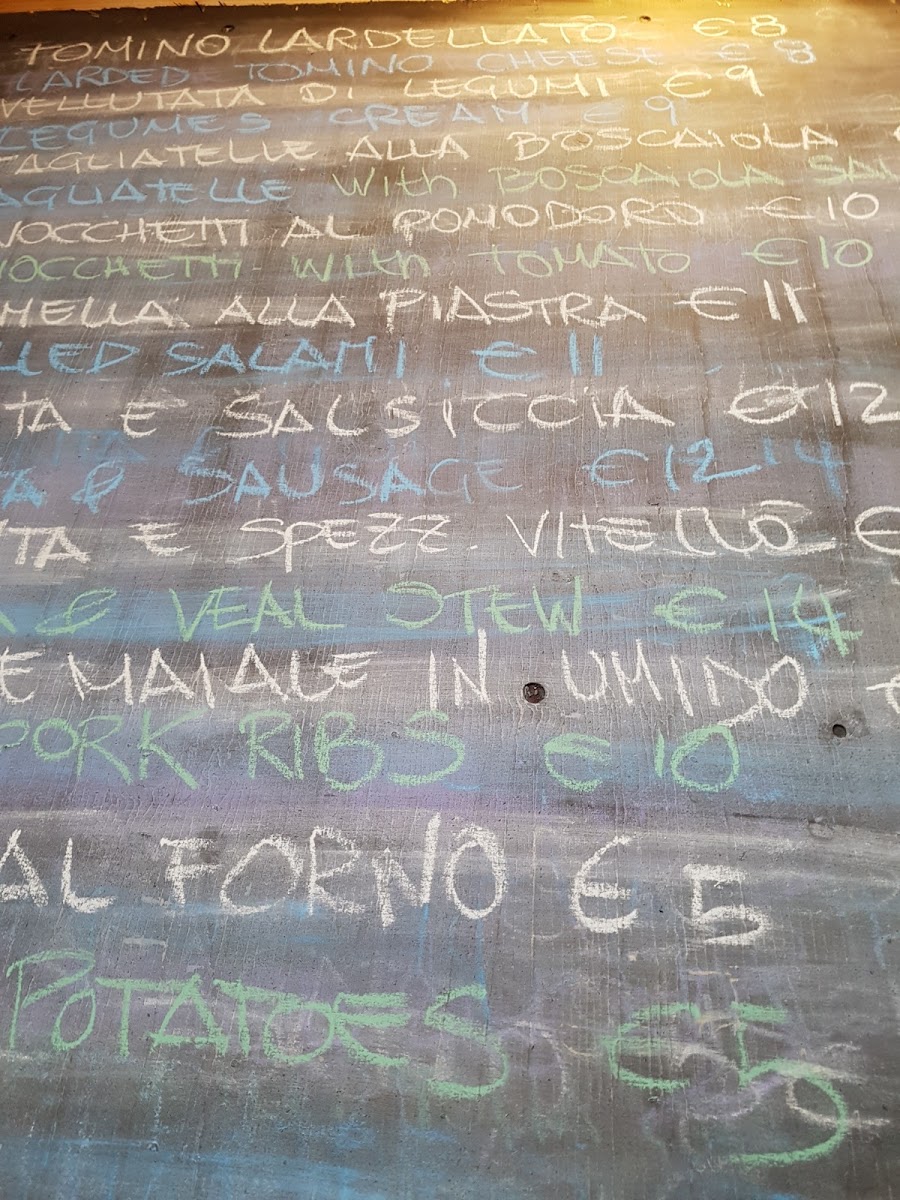 TOMINO LARDELLATO €8
LARDED TOMINO CHEESE €8
VELLUTATA DI LEGUMI €9
LEGUMES CREAM €9
TAGLIATELLE ALLA BOSCAIOLA
AGLIATELLE With BOSCAIOLA SAU
NOCCHETTI AL POMODORO €10
NOCCHETTI With TOMATO €10
MELLA ALLA PIASTRA €11
LLED SALAMI €11
TA E SALSICCIA €12
TA & SAUSAGE €12
TA E SPEZZ. VITELLO €
A & VEAL STEW €14
E MAIALE IN UMIDO €
PORK RIBS €10
AL FORNO €5
POTATOES €5